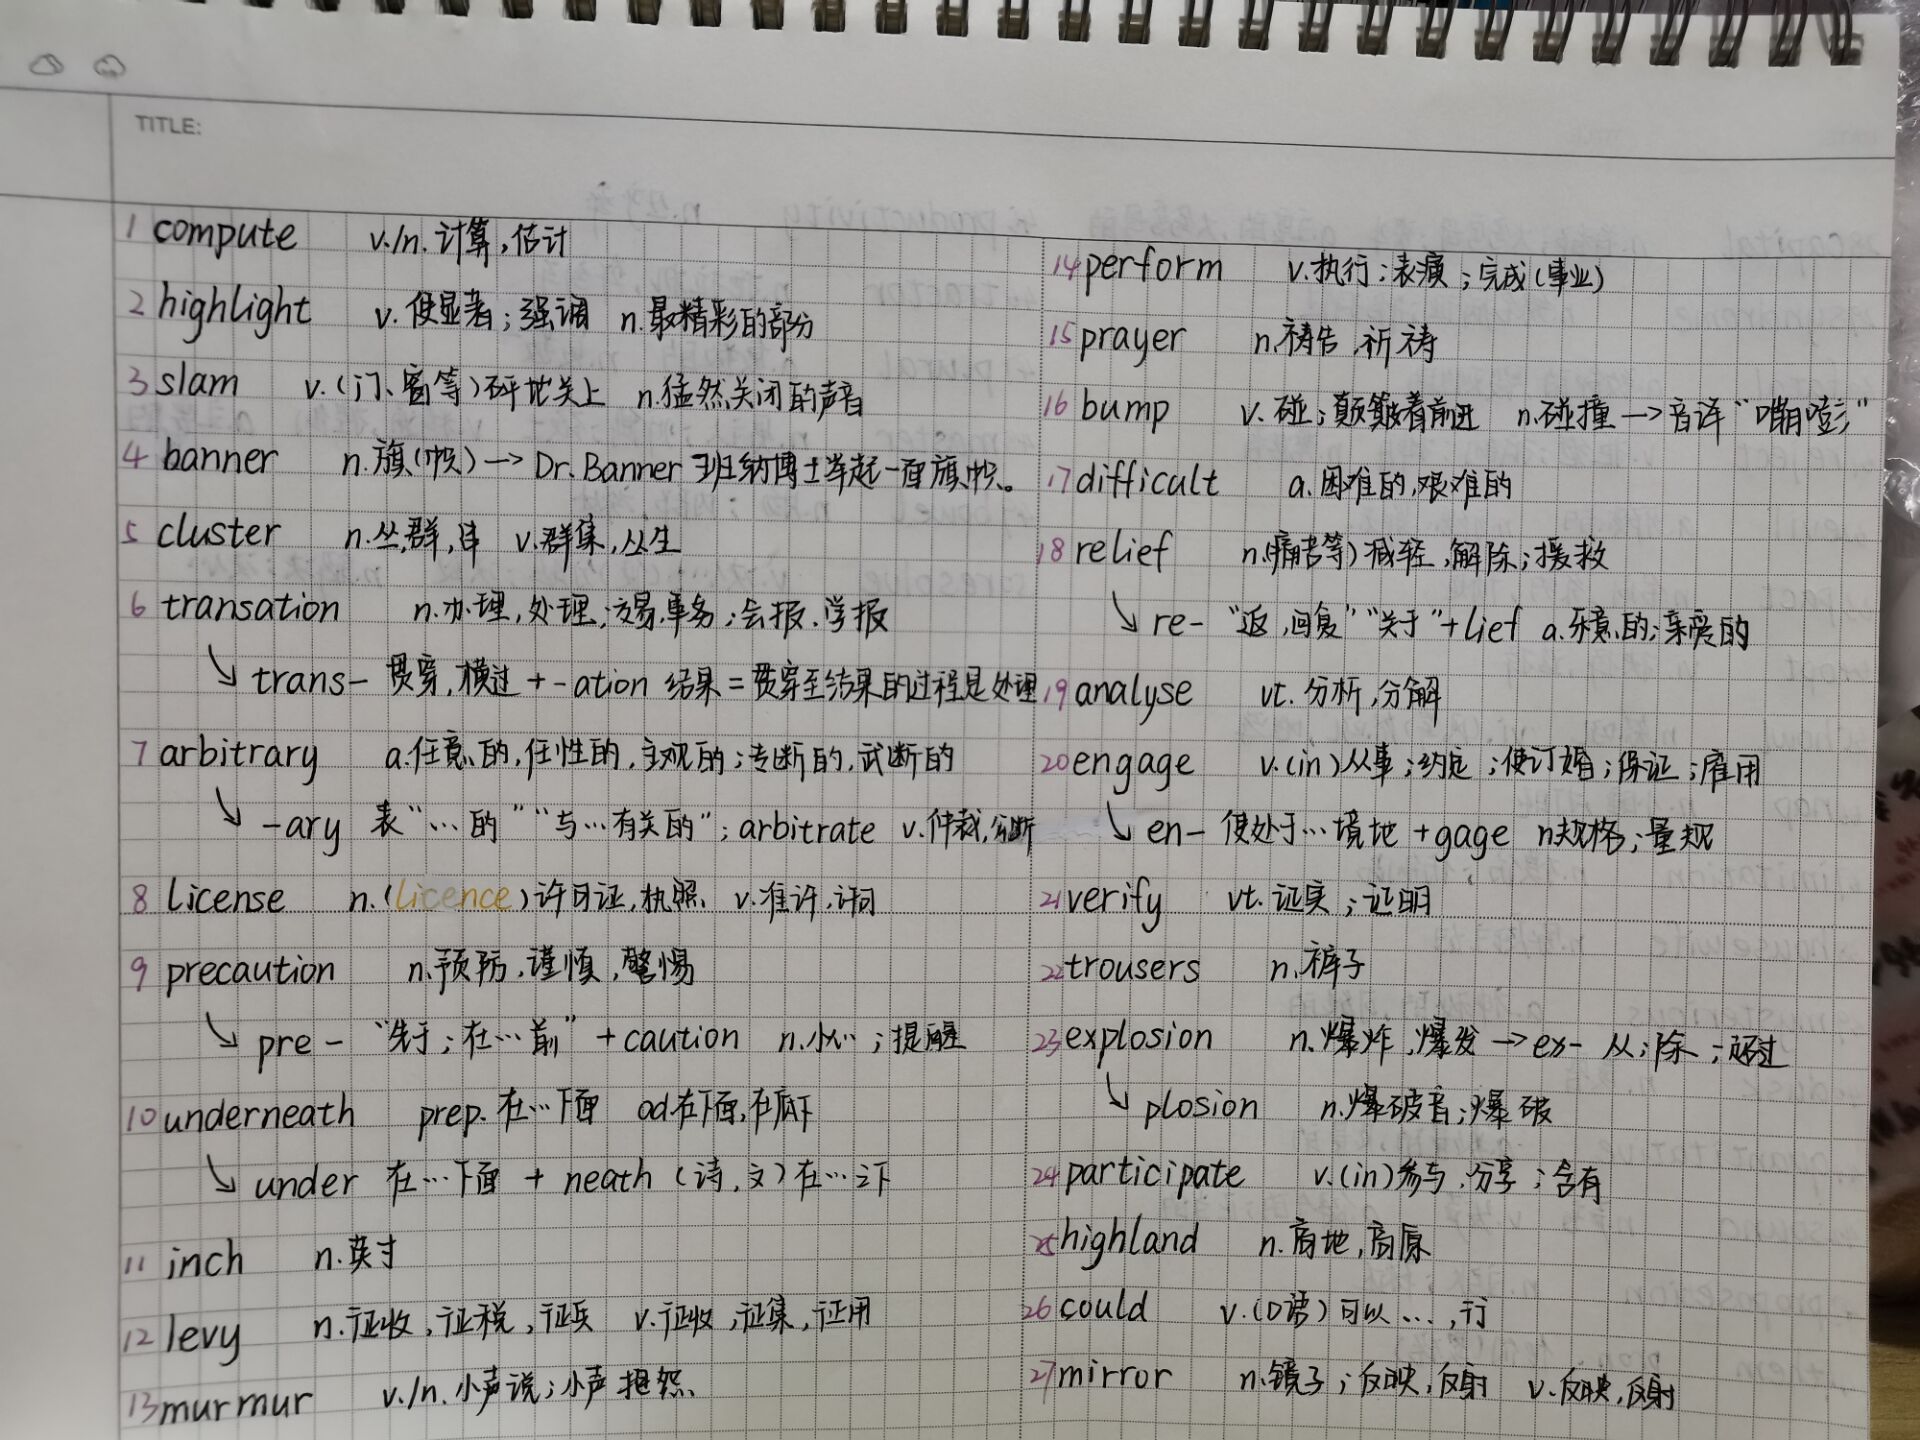 TITLE:
1 compute v./n. 计算,估计
2 highlight v. 使显著;强调 n.最精彩的部分
3 slam v.(门、窗等)砰地关上 n.猛然关闭的声音
4 banner n.旗(帜)→ Dr.Banner 班纳博士举起一面旗帜。
5 cluster n.丛,群,串 v.群集,丛生
6 transation n.办理,处理;交易,事务;会报.学报
↘ trans- 贯穿,横过 + -ation 结果 = 贯穿至结果的过程是处理
7 arbitrary a.任意的,任性的,主观的;专断的,武断的
↘ -ary 表“…的”“与…有关的”; arbitrate v.仲裁,公断
8 license n.(licence)许可证,执照 v.准许,许可
9 precaution n.预防,谨慎,警惕
↘ pre- “先于;在…前” + caution n.小心;提醒
10 underneath prep.在…下面 ad.在下面,在底下
↘ under 在…下面 + neath (诗,文)在…之下
11 inch n.英寸
12 levy n.征收,征税,征兵 v.征收,征集,征用
13 murmur v./n.小声说;小声抱怨
14 perform v.执行;表演;完成(事业)
15 prayer n.祷告,祈祷
16 bump v.碰;颠簸着前进 n.碰撞 → 音译“嘣嘭”
17 difficult a.困难的,艰难的
18 relief n.(痛苦等)减轻,解除;援救
↘ re- “返,回复”“关于”+lief a.乐意的;亲爱的
19 analyse vt.分析,分解
20 engage v.(in)从事;约定;使订婚;保证;雇用
↘ en- 使处于…境地 +gage n.规格;量规
21 verify vt.证实;证明
22 trousers n.裤子
23 explosion n.爆炸,爆发 → ex- 从;除;超过
↘ plosion n.爆破音;爆破
24 participate v.(in)参与,分享;含有
25 highland n.高地,高原
26 could v.(口语)可以…,行
27 mirror n.镜子;反映,反射 v.反映,反射